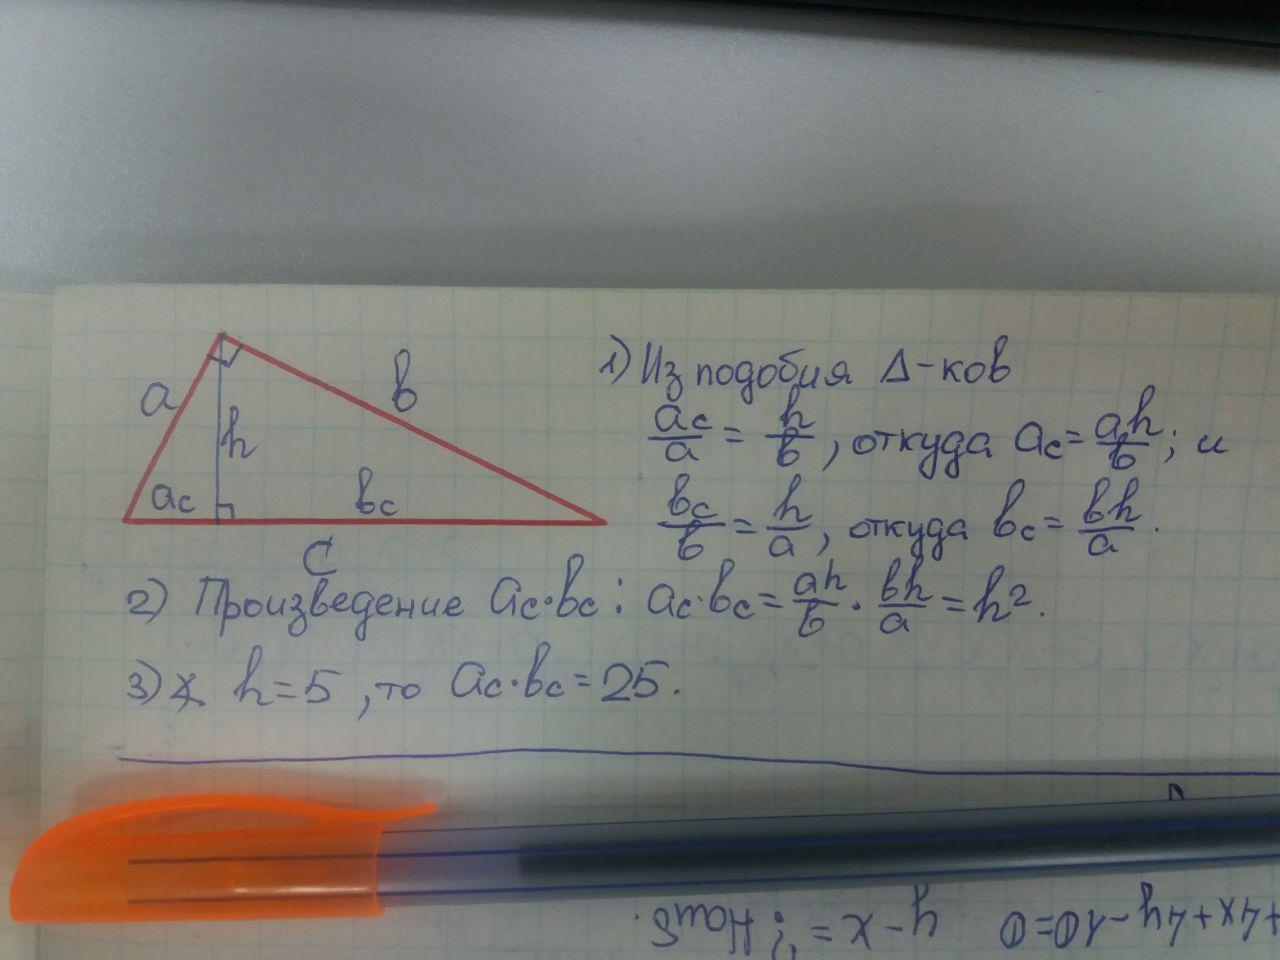 a
b
h
a_c
b_c
C
1) Из подобия Δ-ков
a_c/a = h/b, откуда a_c = ah/b; и
b_c/b = h/a, откуда b_c = bh/a.
2) Произведение a_c·b_c: a_c·b_c = ah/b · bh/a = h².
3) h=5, то a_c·b_c=25.
+4x+4y-10=0
y-x=